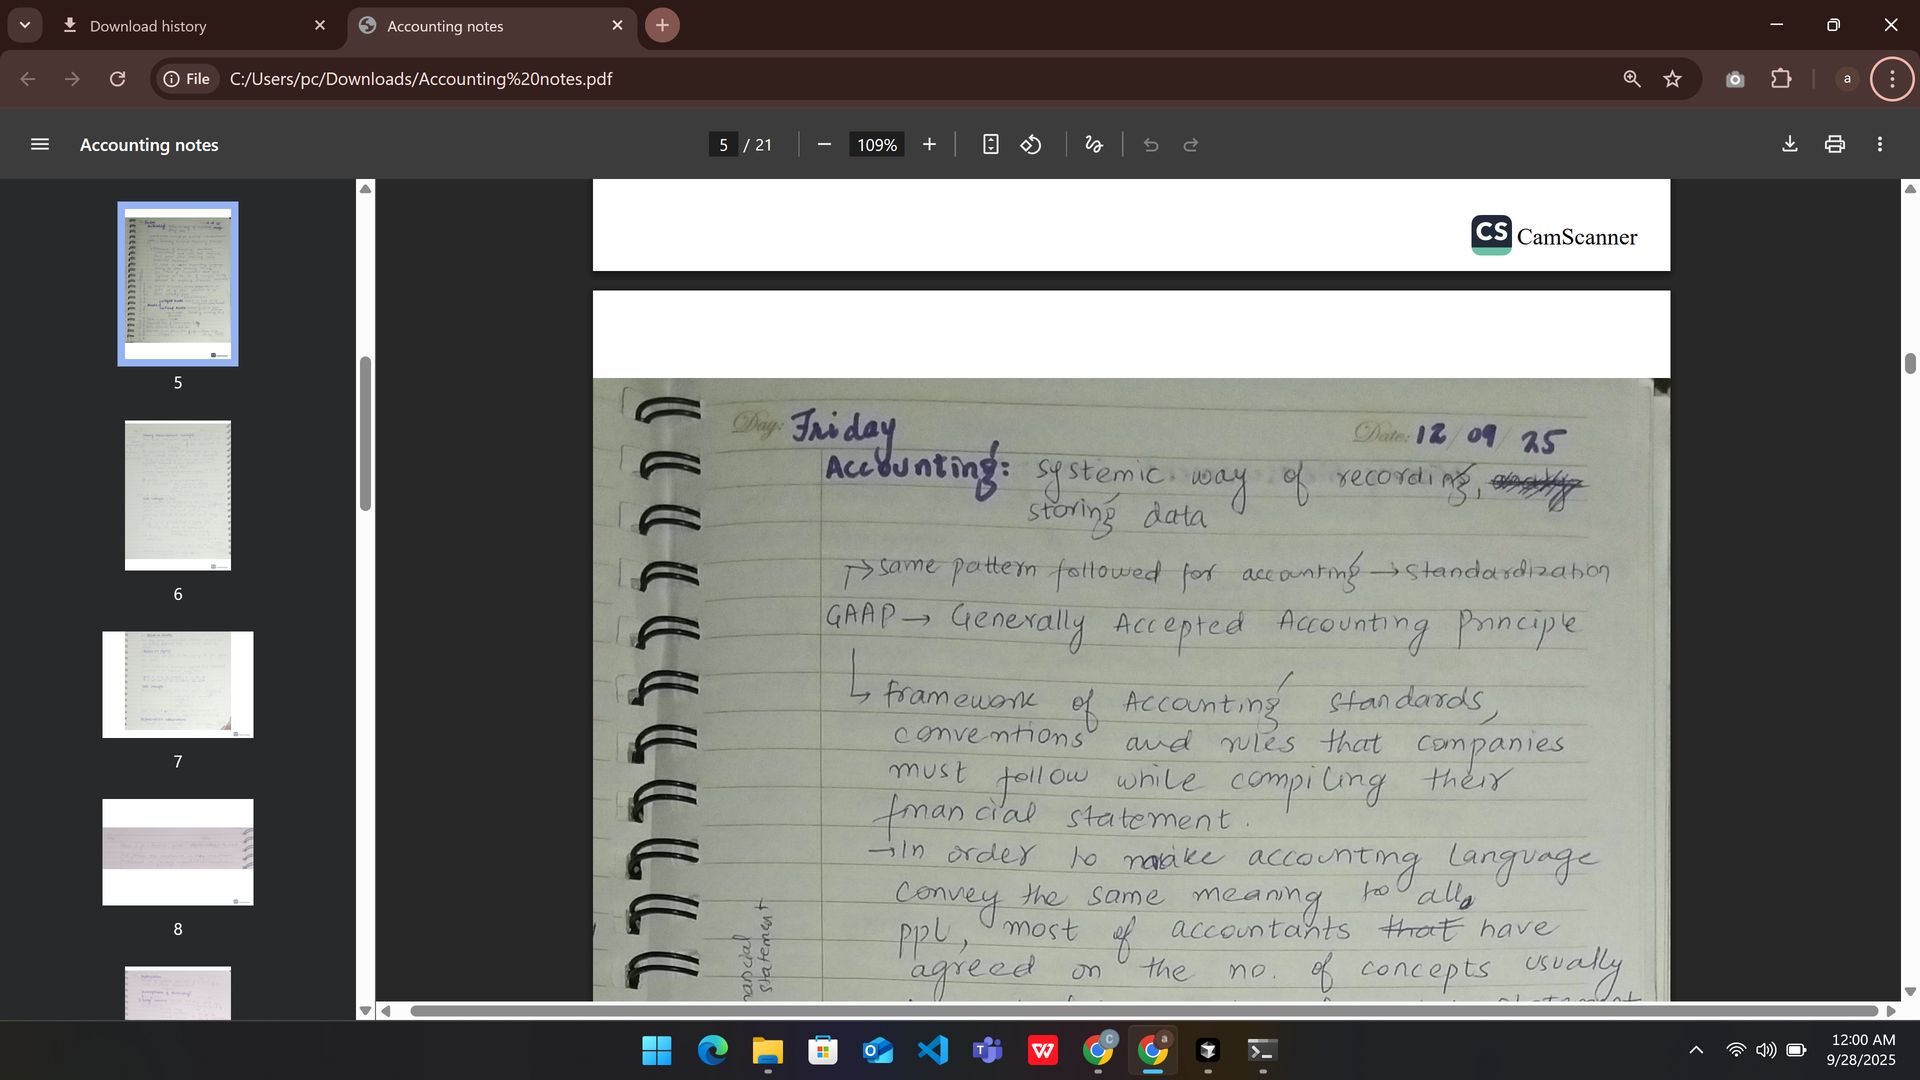 Download history
Accounting notes
File
C:/Users/pc/Downloads/Accounting%20notes.pdf
a
Accounting notes
5 / 21
109%
5
6
7
8
CS CamScanner
Day: Friday
Date: 12 / 09 / 25
Accounting: systemic way of recording,
storing data
→ same pattern followed for accounting → standardization
GAAP → Generally Accepted Accounting Principle
↳ framework of Accounting standards,
conventions and rules that companies
must follow while compiling their
financial statement.
→ In order to make accounting language
convey the same meaning to all
ppl, most of accountants that have
agreed on the no. of concepts usually
statement
C
a
12:00 AM
9/28/2025